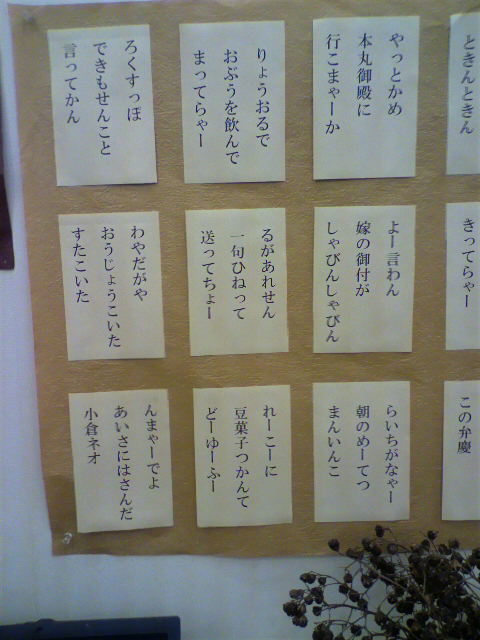 ときんときん
やっとかめ
本丸御殿に
行こまゃーか
りょうおるで
おぶうを飲んで
まってらゃー
ろくすっぽ
できもせんこと
言ってかん
きってらゃー
よー言わん
嫁の御付が
しゃびんしゃびん
るがあれせん
一句ひねって
送ってちょー
わやだがや
おうじょうこいた
すたこいた
この弁慶
らいちがなゃー
朝のめーてつ
まんいんこ
れーこーに
豆菓子つかんて
どーゆーふー
んまゃーでよ
あいさにはさんだ
小倉ネオ